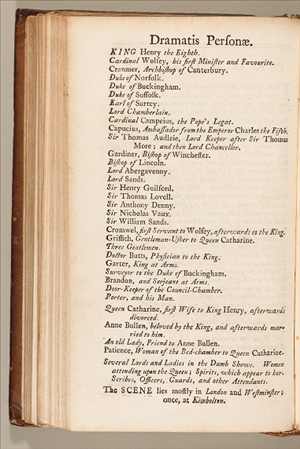 Dramatis Personæ.
KING Henry the Eighth.
Cardinal Wolsey, his first Minister and Favourite.
Cranmer, Archbishop of Canterbury.
Duke of Norfolk.
Duke of Buckingham.
Duke of Suffolk.
Earl of Surrey.
Lord Chamberlain.
Cardinal Campeius, the Pope's Legat.
Capucius, Ambassador from the Emperor Charles the Fifth.
Sir Thomas Audleie, Lord Keeper after Sir Thomas
More; and then Lord Chancellor.
Gardiner, Bishop of Winchester.
Bishop of Lincoln.
Lord Abergavenny.
Lord Sands.
Sir Henry Guilford.
Sir Thomas Lovell.
Sir Anthony Denny.
Sir Nicholas Vaux.
Sir William Sands.
Cromwel, first Servant to Wolsey, afterwards to the King.
Griffith, Gentleman-Usher to Queen Catharine.
Three Gentlemen.
Doctor Butts, Physician to the King.
Garter, King at Arms.
Surveyor to the Duke of Buckingham.
Brandon, and Serjeant at Arms.
Door-Keeper of the Council-Chamber.
Porter, and his Man.
Queen Catharine, first Wife to King Henry, afterwards
divorced.
Anne Bullen, beloved by the King, and afterwards mar-
ried to him.
An old Lady, Friend to Anne Bullen.
Patience, Woman of the Bed-chamber to Queen Catharine.
Several Lords and Ladies in the Dumb Shows. Women
attending upon the Queen; Spirits, which appear to her.
Scribes, Officers, Guards, and other Attendants.
The SCENE lies mostly in London and Westminster;
once, at Kimbolton.